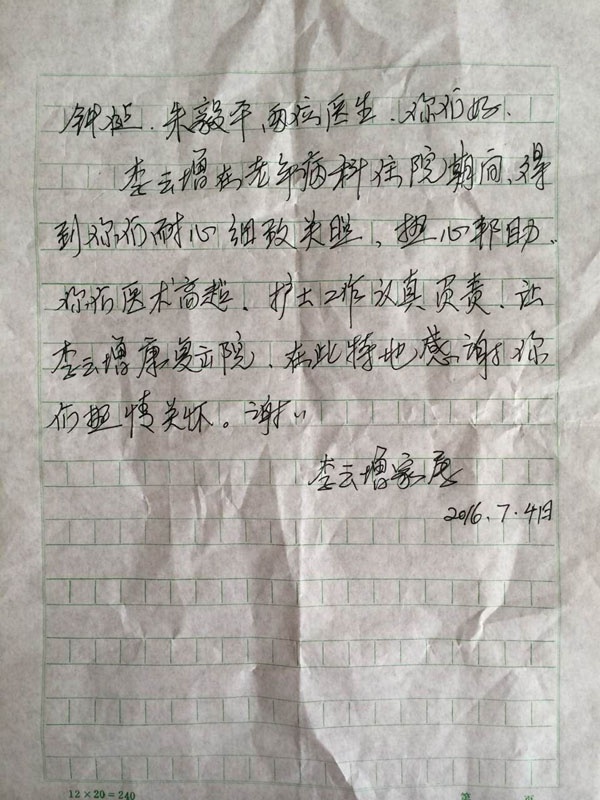 钟植、朱毅平两位医生、你们好、
李云增在老年病科住院期间、得
到你们耐心细致关照、热心帮助、
你们医术高超、护士工作认真负责、让
李云增康复出院、在此特地感谢你
们热情关怀。谢谢
李云增家属
2016.7.4日
12×20=240
第 页